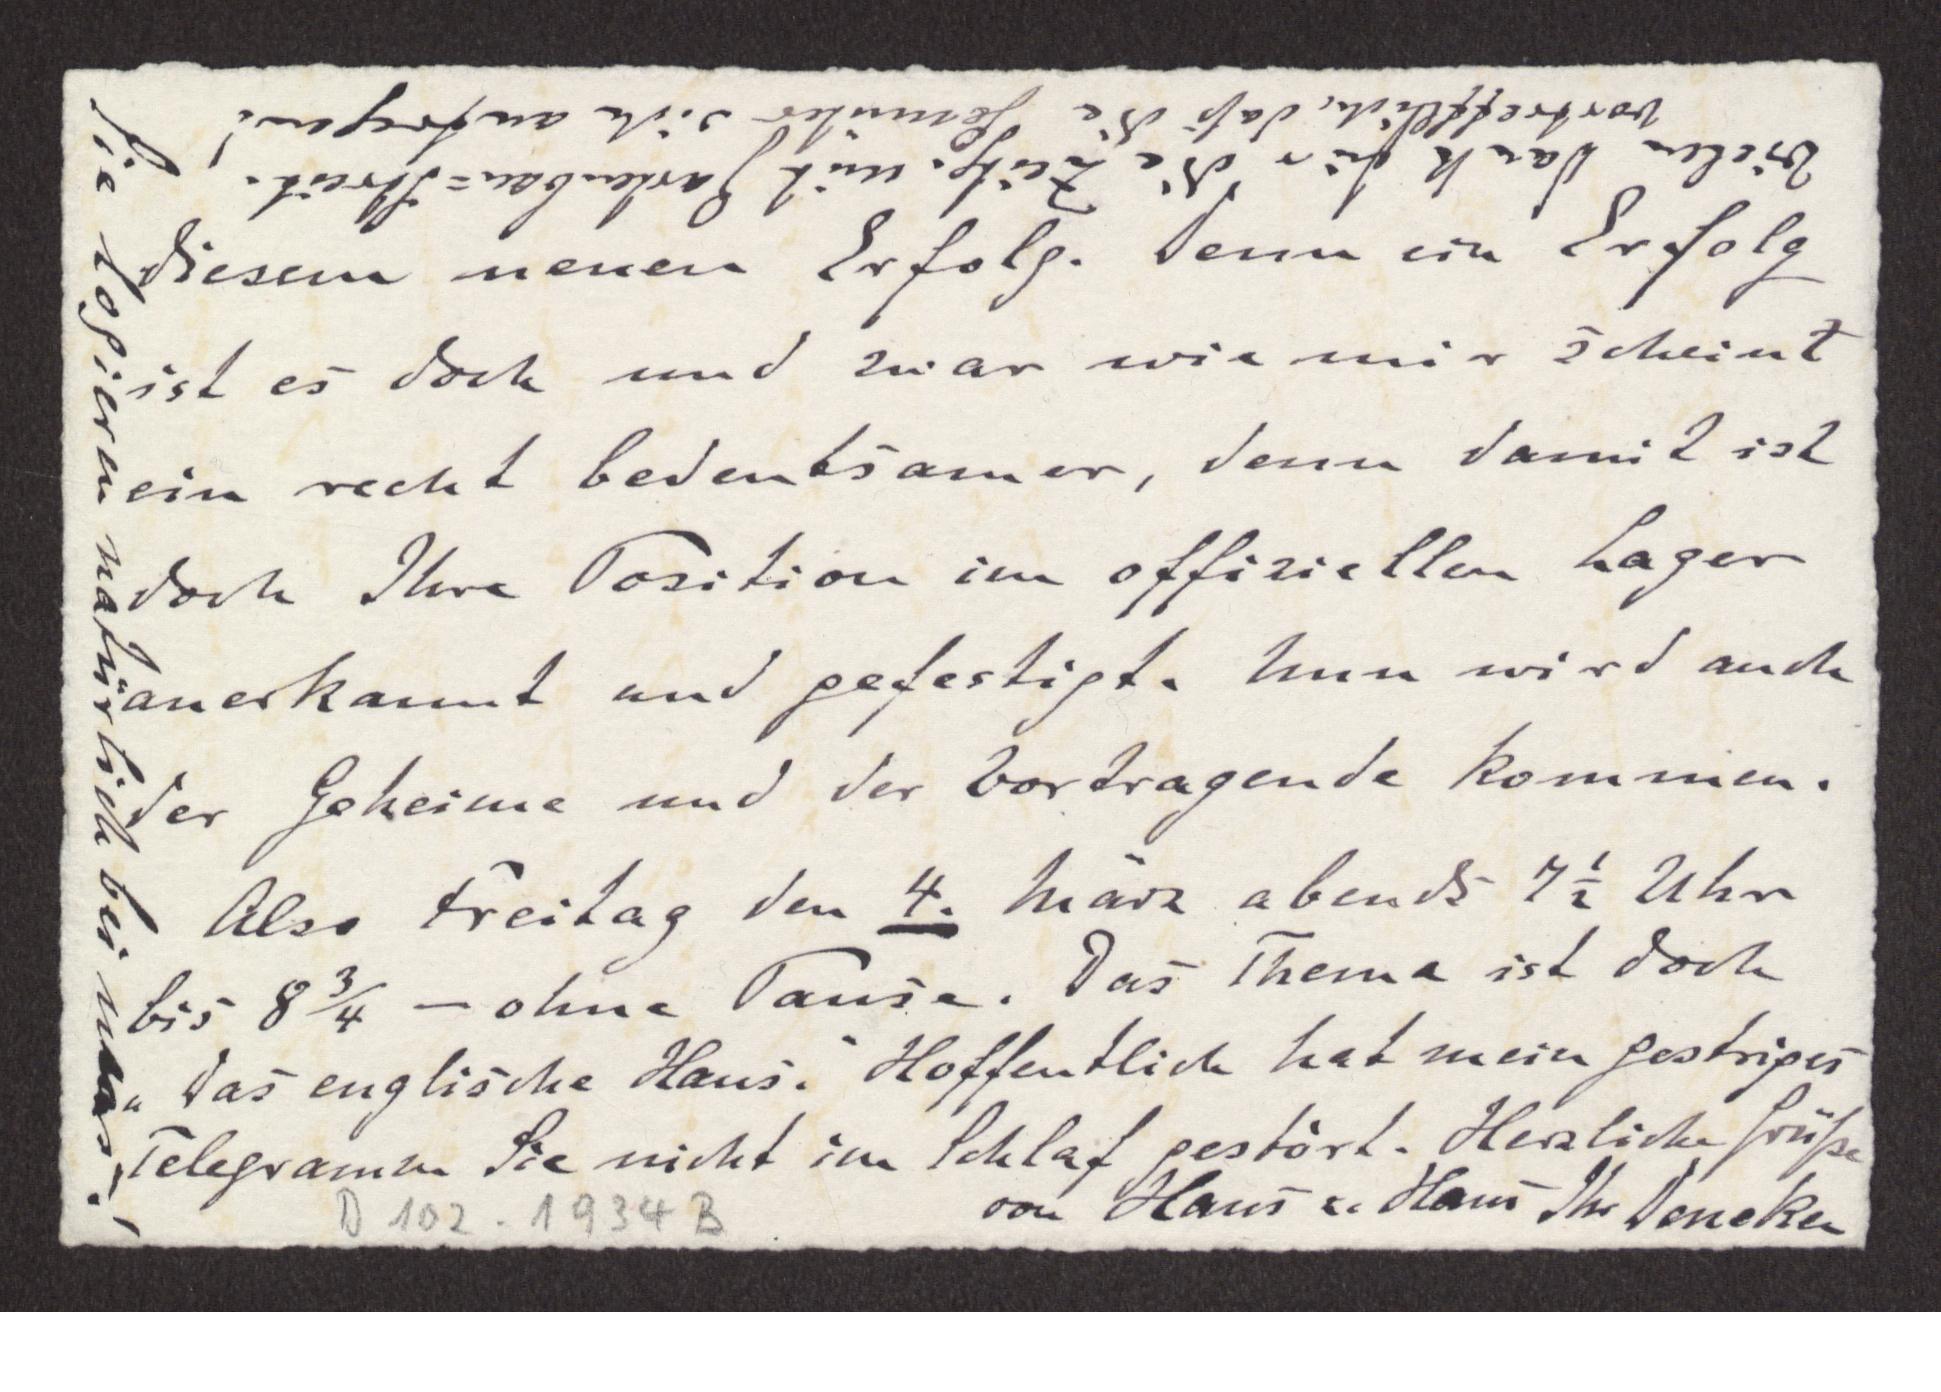 diesem neuen Erfolg. Denn ein Erfolg
ist es doch und zwar wie mir scheint
ein recht bedeutsamer, denn damit ist
doch Ihre Position im offiziellen Lager
anerkannt und gefestigt. Nun wird auch
der Geheime und der Vortragende kommen.
Also Freitag den 4. März abends 7 1/2 Uhr
bis 8 3/4 – ohne Pause. Das Thema ist doch
„Das englische Haus." Hoffentlich hat mein gestriges
Telegramm Sie nicht im Schlaf gestört. Herzliche Grüße
von Haus u. Haus Ihr Deneken
Sie logieren natürlich bei uns!
Vielen Dank für die Zeitg. mit Gartenbau=Streit.
Vortrefflich, daß die Gemüter sich aufregen!
D 102. 1934 B